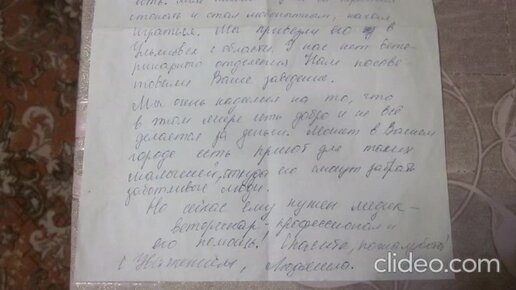 стонать и стал медлительным, начал
играться. Мы привезли его в
Ульяновск с области. У нас нет вете-
ринарного отделения. Нам посове-
товали Ваше заведение.
Мы очень надеемся на то, что
в этом мире есть добро и не всё
делается за деньги. Может в Вашем
городе есть приют для таких
малышей, откуда его смогут забрать
заботливые люди.
Но сейчас ему нужен медик-
ветеринар-профессионал и
его помощь! Спасибо, пожалуйста!
С Уважением, Людмила.
clideo.com